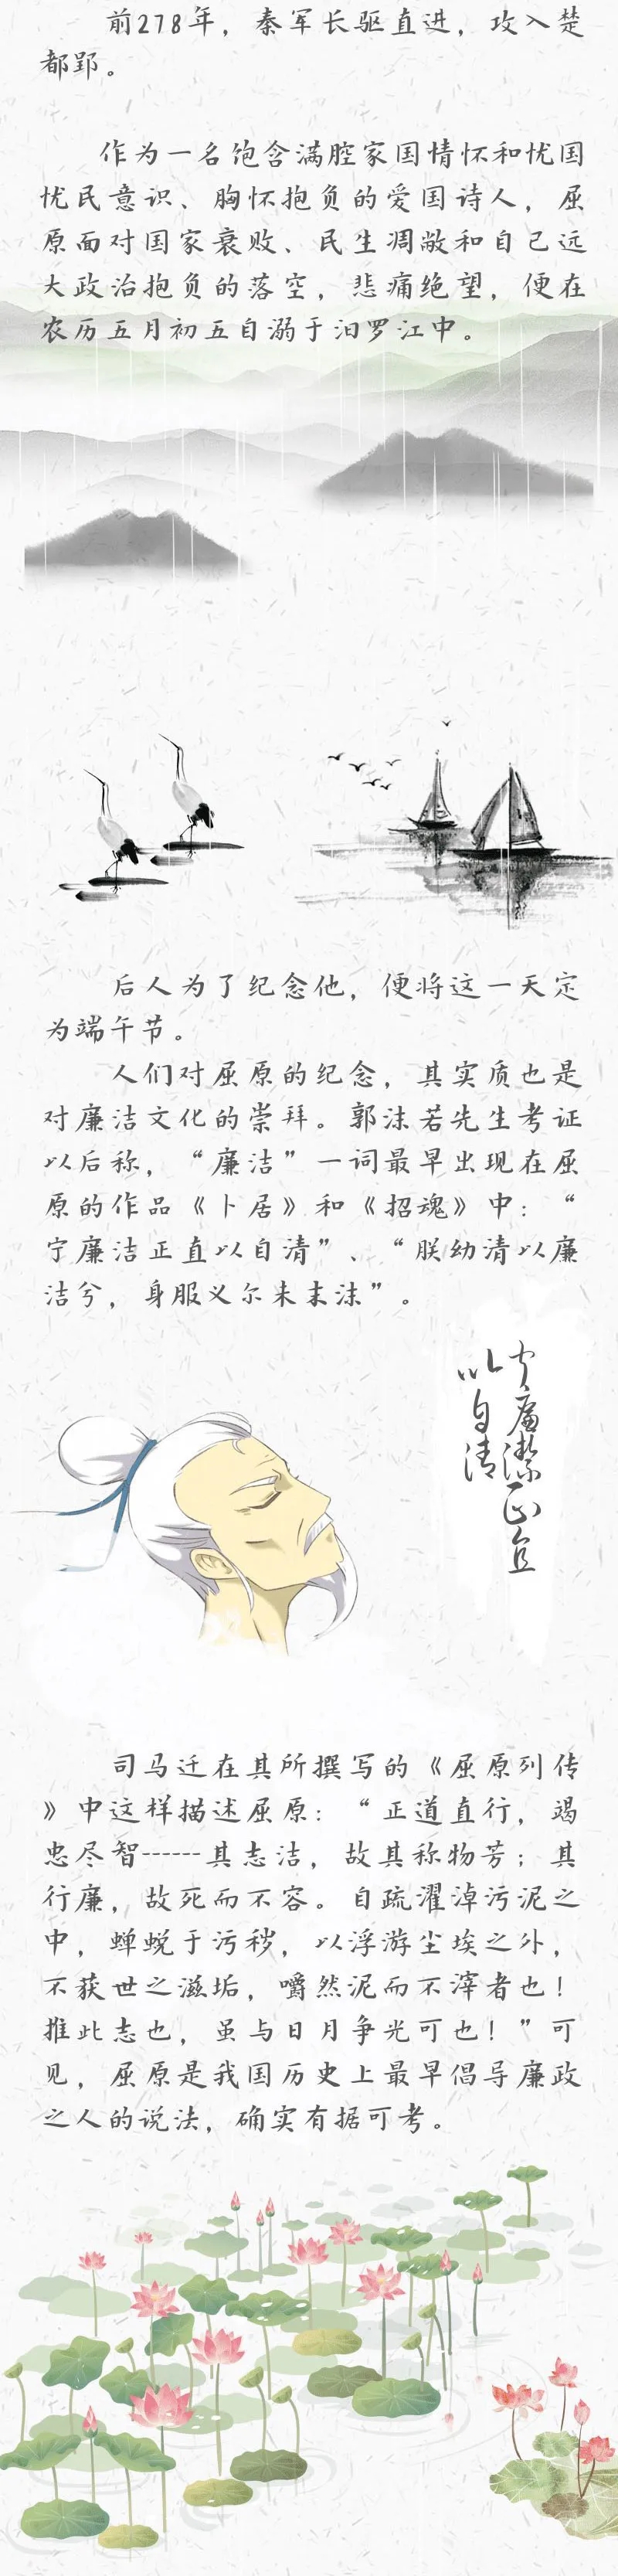 前278年，秦军长驱直进，攻入楚
都郢。
作为一名饱含满腔家国情怀和忧国
忧民意识、胸怀抱负的爱国诗人，屈
原面对国家衰败、民生凋敝和自己远
大政治抱负的落空，悲痛绝望，便在
农历五月初五自溺于汨罗江中。
后人为了纪念他，便将这一天定
为端午节。
人们对屈原的纪念，其实质也是
对廉洁文化的崇拜。郭沫若先生考证
以后称，“廉洁”一词最早出现在屈
原的作品《卜居》和《招魂》中：“
宁廉洁正直以自清”、“朕幼清以廉
洁兮，身服义尔未末沫”。
宁廉潔正直
以自清
司马迁在其所撰写的《屈原列传
》中这样描述屈原：“正道直行，竭
忠尽智------其志洁，故其称物芳；其
行廉，故死而不容。自疏濯淖污泥之
中，蝉蜕于污秽，以浮游尘埃之外，
不获世之滋垢，嚼然泥而不滓者也！
推此志也，虽与日月争光可也！”可
见，屈原是我国历史上最早倡导廉政
之人的说法，确实有据可考。